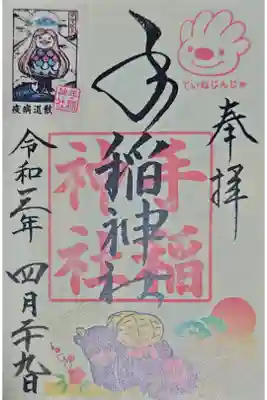 奉拝
ていねじんじゃ
手稲神社
手稲
神社
疫病退散
令和三年
四月二十九日